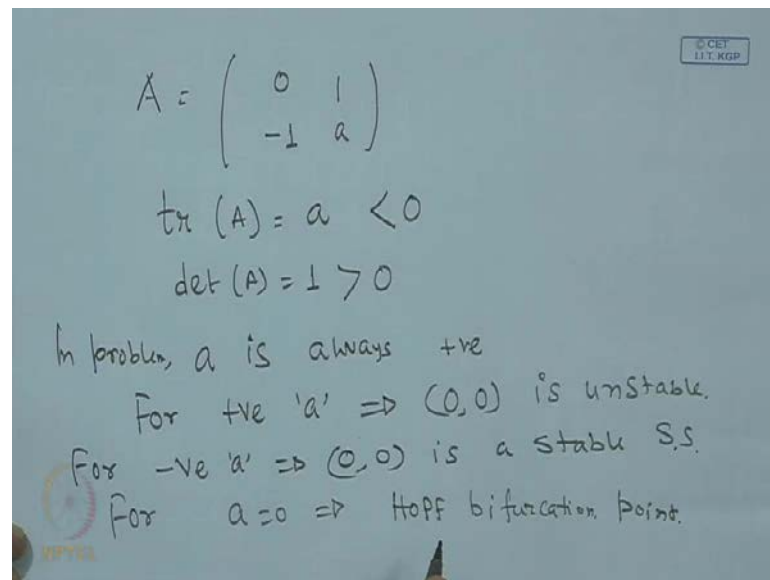 © CET
I.I.T. KGP
A = ( 0 1
-1 a )
tr (A) = a < 0
det (A) = 1 > 0
In problem, a is always +ve
For +ve 'a' => (0,0) is unstable.
For -ve 'a' => (0,0) is a stable S.S.
For a=0 => Hopf bifurcation point.
NPTEL